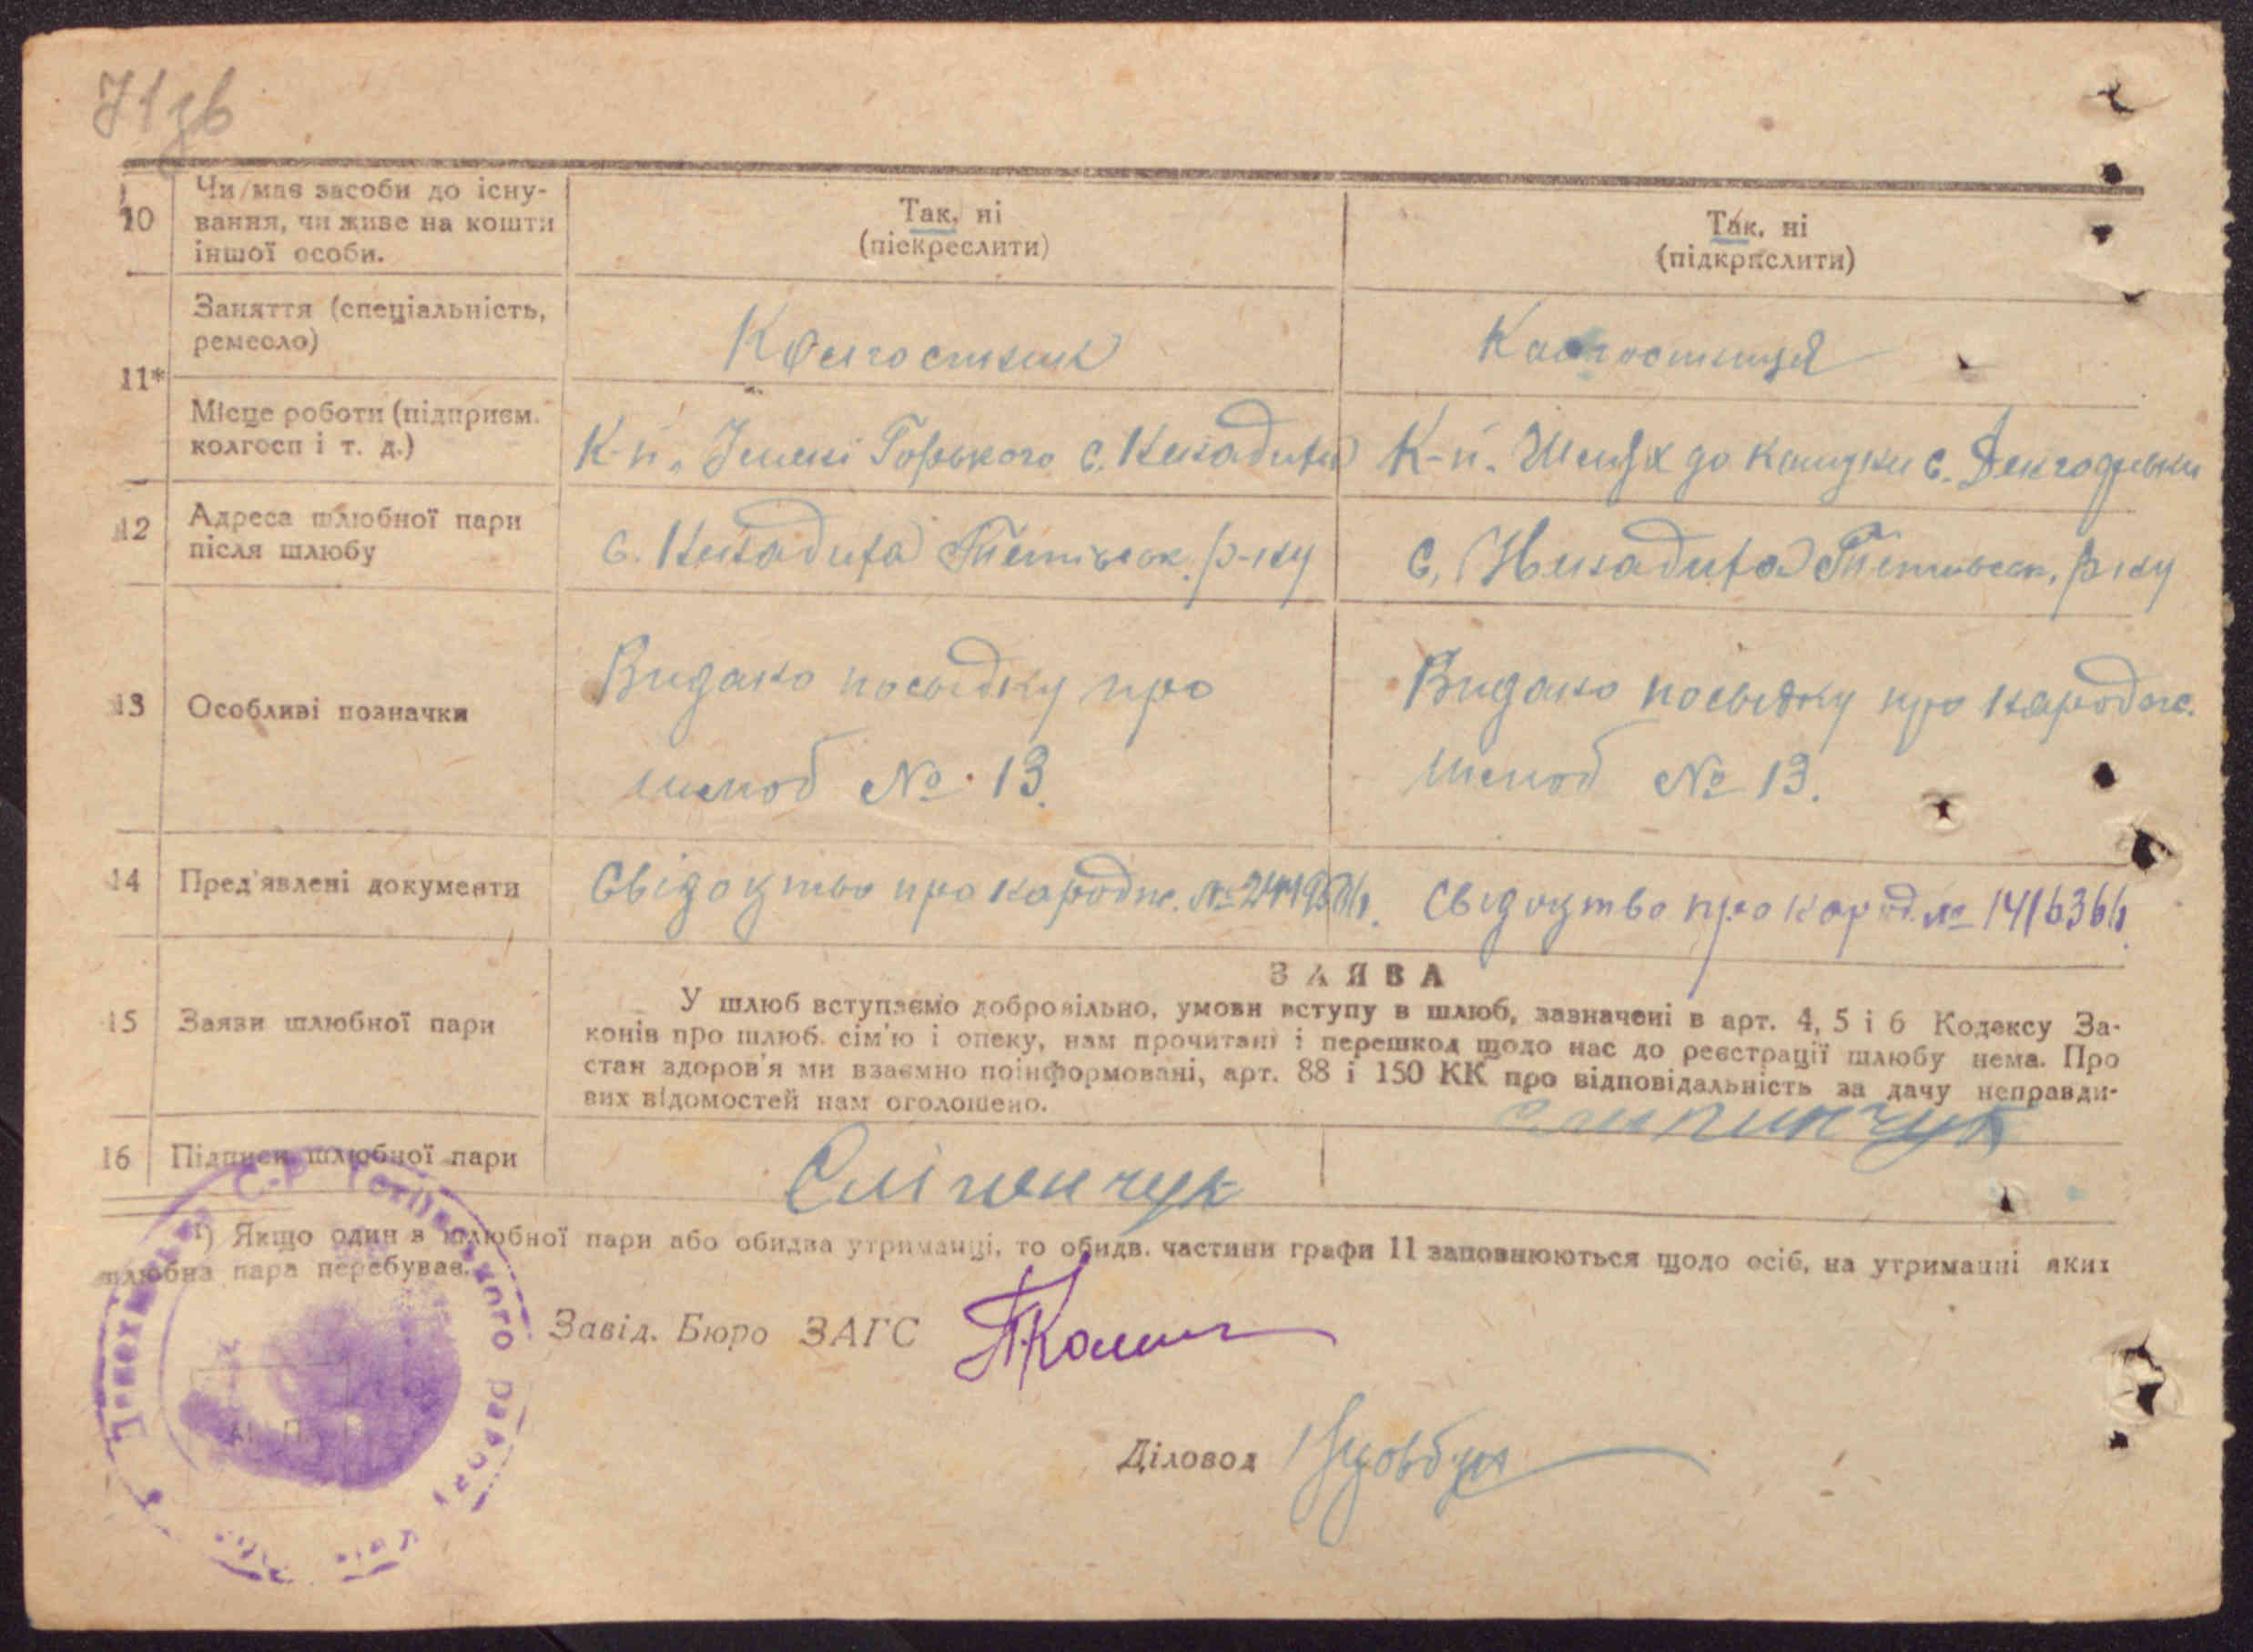 71зв
10
Чи має засоби до існу-
вання, чи живе на кошти
іншої особи.
Так, ні
(піекреслити)
Так, ні
(підкрислити)
11*
Заняття (спеціальність,
ремесло)
Колгоспник
Колгоспниця
Місце роботи (підприєм.
колгосп і т. д.)
К-п. Імені Горького с.
К-п. Шлях до с.
12
Адреса шлюбної пари
після шлюбу
с. Тетівськ. р-ну
с. Тетівськ. р-ну
13
Особливі позначки
Видано посвідку про
шлюб № 13.
Видано посвідку про народж.
шлюб № 13.
14
Пред'явлені документи
Свідоцтво про народж. №
Свідоцтво про народ. №
15
Заяви шлюбної пари
ЗАЯВА
У шлюб вступаємо добровільно, умови вступу в шлюб, зазначені в арт. 4, 5 і 6 Кодексу За-
конів про шлюб. сім'ю і опеку, нам прочитані і перешкод щодо нас до реєстрації шлюбу нема. Про
стан здоров'я ми взаємно поінформовані, арт. 88 і 150 КК про відповідальність за дачу неправди-
вих відомостей нам оголошено.
16
Підписи шлюбної пари
Сліпенчук
¹) Якщо один з шлюбної пари або обидва утриманці, то обидв. частини графи 11 заповнюються щодо осіб, на утриманні яких
шлюбна пара перебуває.
Завід. Бюро ЗАГС
Діловод
М. П.